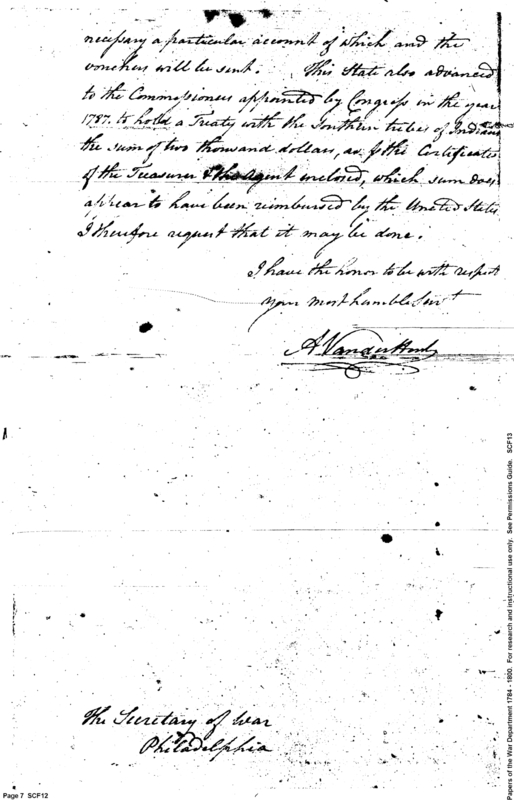 necessary a particular account of which and the
vouchers will be sent. This State also advanced
to the Commissioners appointed by Congress in the year
1787. to hold a Treaty with the Southern tribes of Indians
the sum of two thousand dollars, as the Certificates
of the Treasurer & the agent enclosed, which sum does
appear to have been reimbursed by the United States
I therefore request that it may be done.
I have the honor to be with respect
your most humble Servt
A Vanderhorst
The Secretary of War
Philadelphia
Page 7 SCF12
Papers of the War Department 1784 - 1800. For research and instructional use only. See Permissions Guide. SCF13